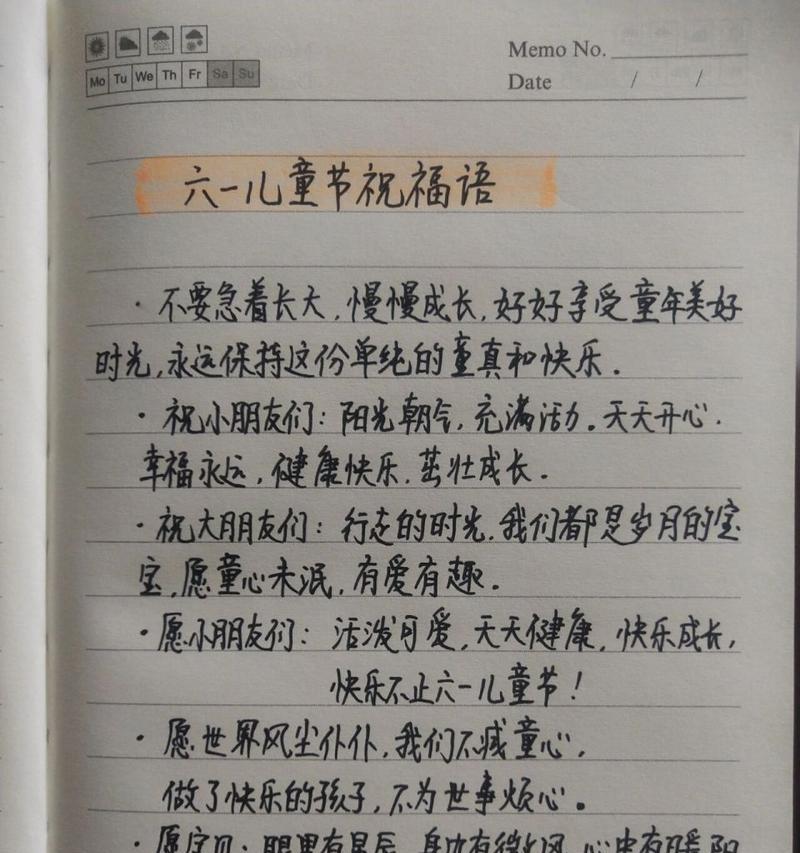 Memo No.
Mo Tu We Th Fr Sa Su
Date / /
六一儿童节祝福语
· 不要急着长大,慢慢成长,好好享受童年美好
时光,永远保持这份单纯的童真和快乐.
· 祝小朋友们: 阳光朝气,充满活力。天天开心.
幸福永远,健康快乐,茁壮成长.
· 祝大朋友们: 行走的时光,我们都是岁月的宝
宝,愿童心未泯,有爱有趣.
· 愿小朋友们: 活泼可爱,天天健康,快乐成长,
快乐不止六一儿童节!
· 愿世界风尘仆仆,我们不减童心,
做了快乐的孩子,不为世事烦心。
· 愿宝贝: 眼里有星辰,身边有微风,心中有暖阳